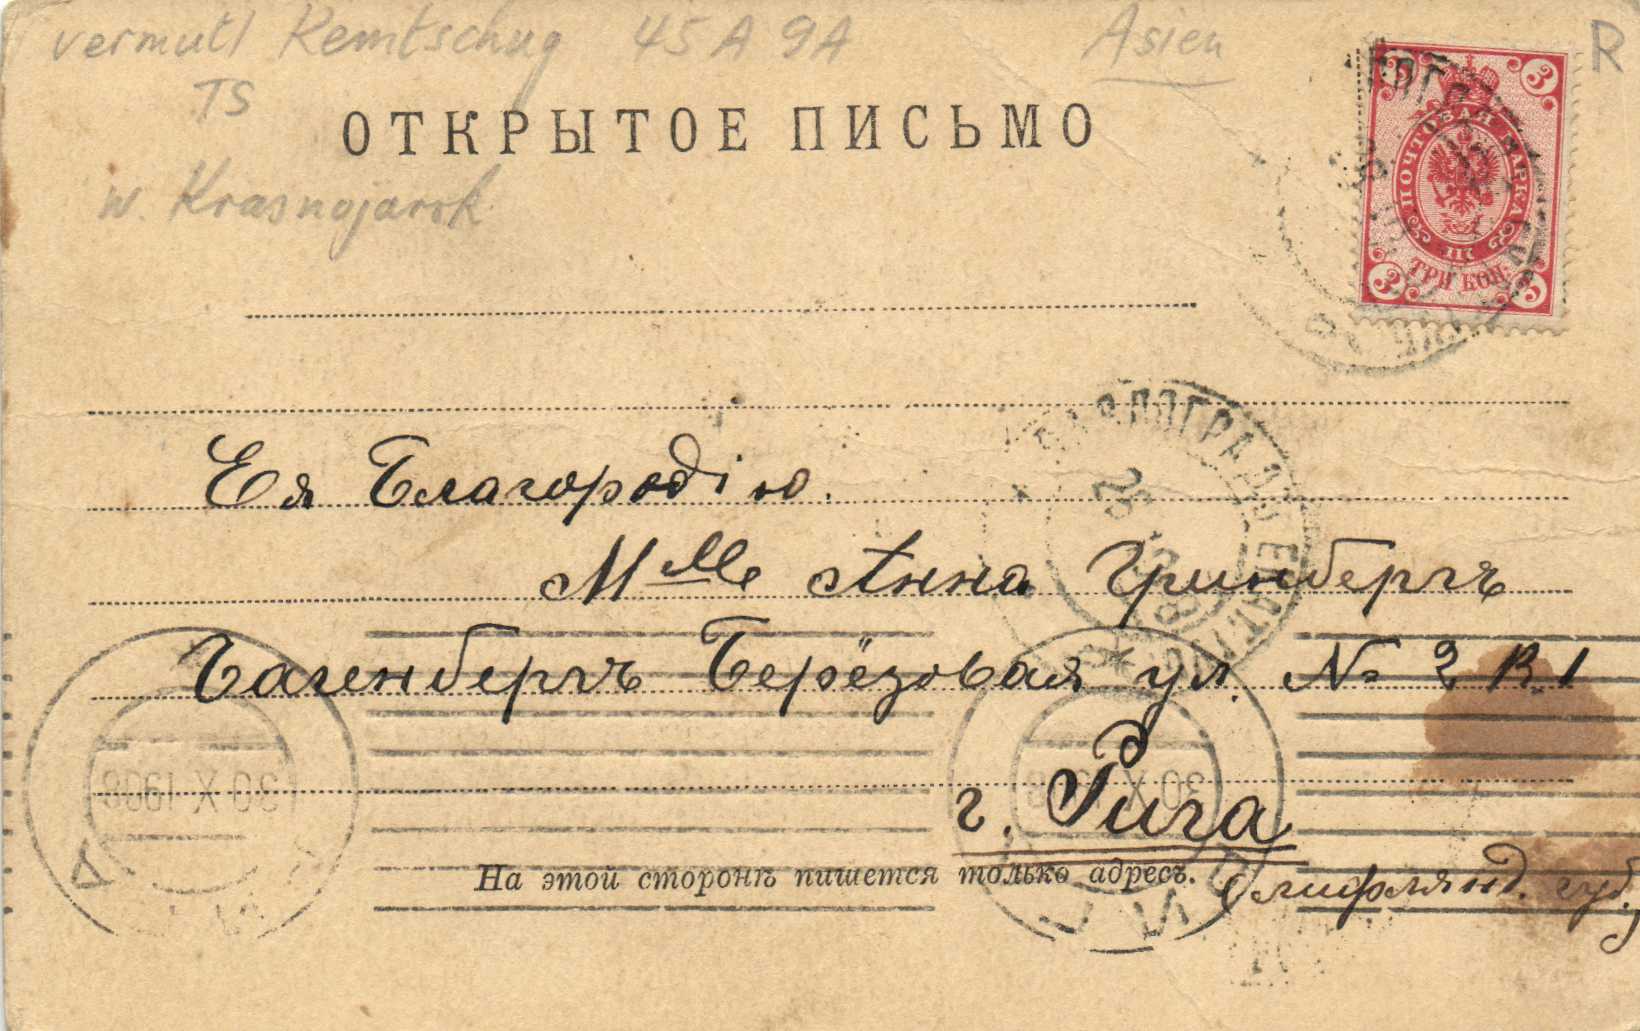 vermutl Kemtschug 45 A 9A Asien R
TS
ОТКРЫТОЕ ПИСЬМО
w. Krasnojarsk
3 3
ПОЧТОВАЯ МАРКА
ТРИ КОП.
3 3
ПАВЛОГРАДЪ ЕКАТ.
Ея Благородію.
Mlle Анна Гринбергъ
Гагенбергъ Берёзовая ул. № 2 к. 1
30 X 1908
30 X
г. Рига
РИГА
На этой сторонѣ пишется только адресъ.
Лифлянд. губ.